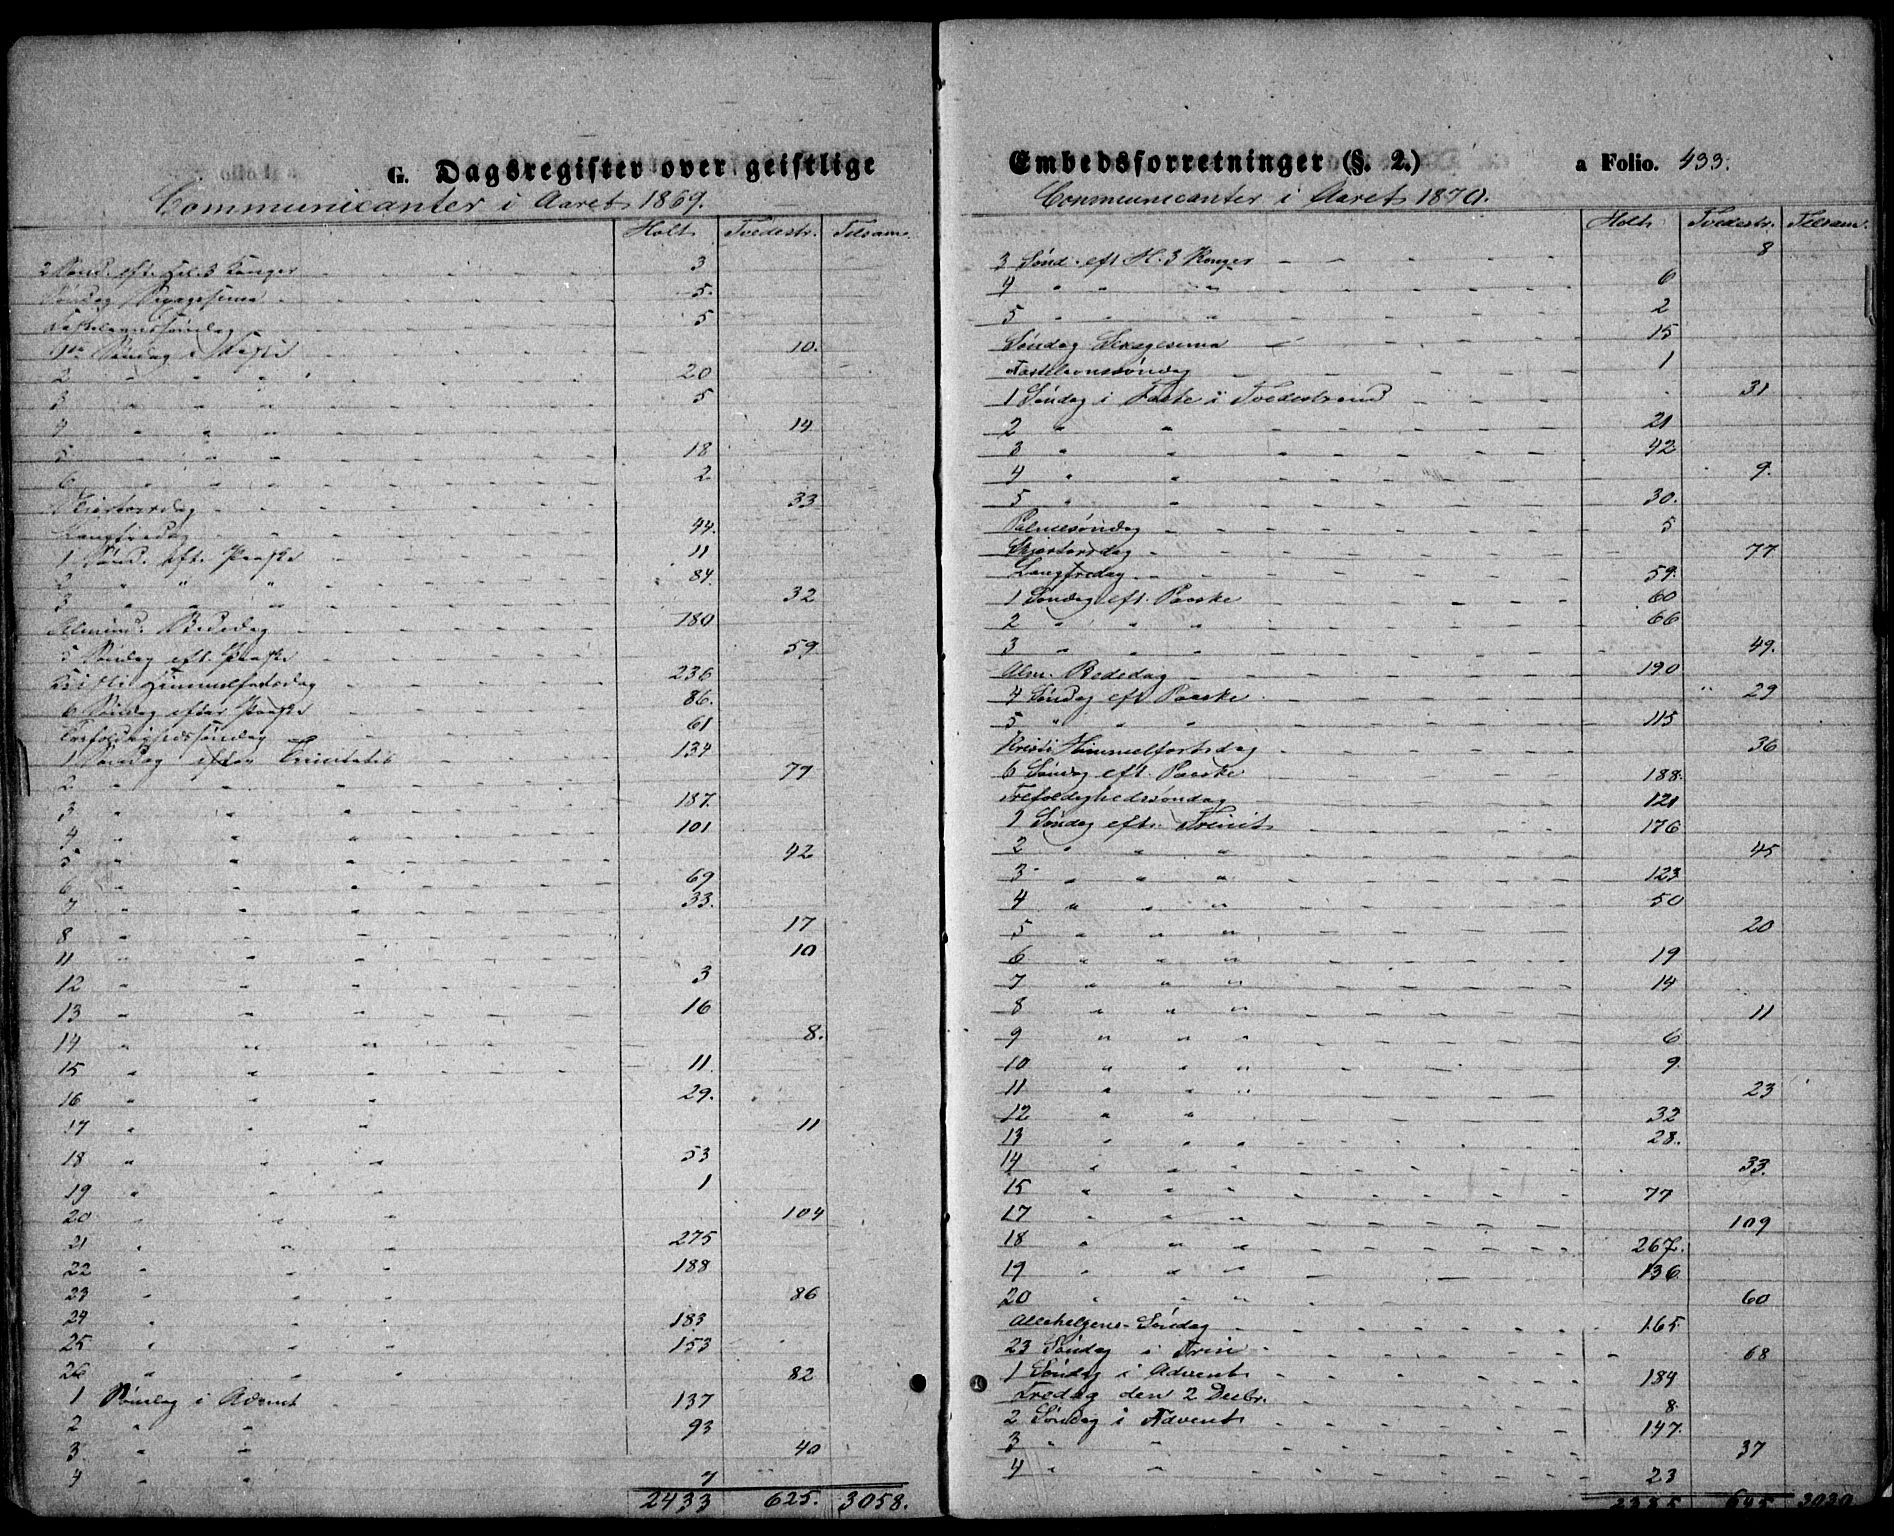 G. Dagsregister over geistlige
Communicanter i Aaret 1869.
Holt Tvedestr. Tilsam.
2 Sønd. eft. Hel. 3 Konger 3
Søndag Sexagesima 5.
Fastelavnssøndag 5
1ste Søndag i Faste 10.
2 " " " 20
3 " " " 5
4 " " " 14
5 " " " 18
6 " " " 2
Skjertorsdag 33
Langfredag 44.
1 Sønd. eft. Paaske 11
2 " " " 84.
3 " " " 32
Almind. Bededag 180
5 Søndag eft. Paaske 59.
Kristi Himmelfartsdag 236
6 Søndag efter Paaske 86.
Trefoldighedssøndag 61
1 Søndag efter Trinitatis 134
2 " " " 77
3 " " " 187.
4 " " " 101
5 " " " 42
6 " " " 69
7 " " " 33.
8 " " " 17
11 " " " 10
12 " " " 3
13 " " " 16
14 " " " 8.
15 " " " 11.
16 " " " 29.
17 " " " 11
18 " " " 53
19 " " " 1
20 " " " 104
21 " " " 275
22 " " " 188
23 " " " 86
24 " " " 183
25 " " " 153
26 " " " 82
1 Søndag i Advent 137
2 " " 93
3 " " 40
4 " " 7
2433 625. 3058.
Embedsforretninger (§. 2.) a Folio. 433.
Communicanter i Aaret 1870.
Holt Tvedestr. Tilsam.
3 Sønd. eft H. 3 Konger 8
4 " " " 6
5 " " " 2
Søndag Sexagesima 15
Fastelavnssøndag 1
1 Søndag i Faste i Tvedestrand 31
2 " " 21
3 " " 42
4 " " 9.
5 " " 30.
Palmesøndag 5
Skjertorsdag 77
Langfredag 59.
1 Søndag eft. Paaske 60
2 " " " 66
3 " " " 49.
Alm. Bededag 190
4 Søndag eft Paaske 29
5 " " " 115
Kristi Himmelfartsdag 36
6 Søndag eft. Paaske 188.
Trefoldighedssøndag 121
1 Søndag eft. Trinit. 176
2 " " " 45
3 " " " 123
4 " " " 50
5 " " " 20
6 " " " 19
7 " " " 14
8 " " " 11
9 " " " 6
10 " " " 9.
11 " " " 23
12 " " 32
13 " " " 28.
14 " " " 33.
15 " " " 77
17 " " " 109
18 " " " 267.
19 " " " 136
20 " " " 60
Allehelgens-Søndag 165
23 Søndag i Trin 68
1 Søndg i Advent 184
Fredag den 2 Decbr. 8
2 Søndag i Advent 147.
3 " " 37
4 " " 23
2385 645 3030